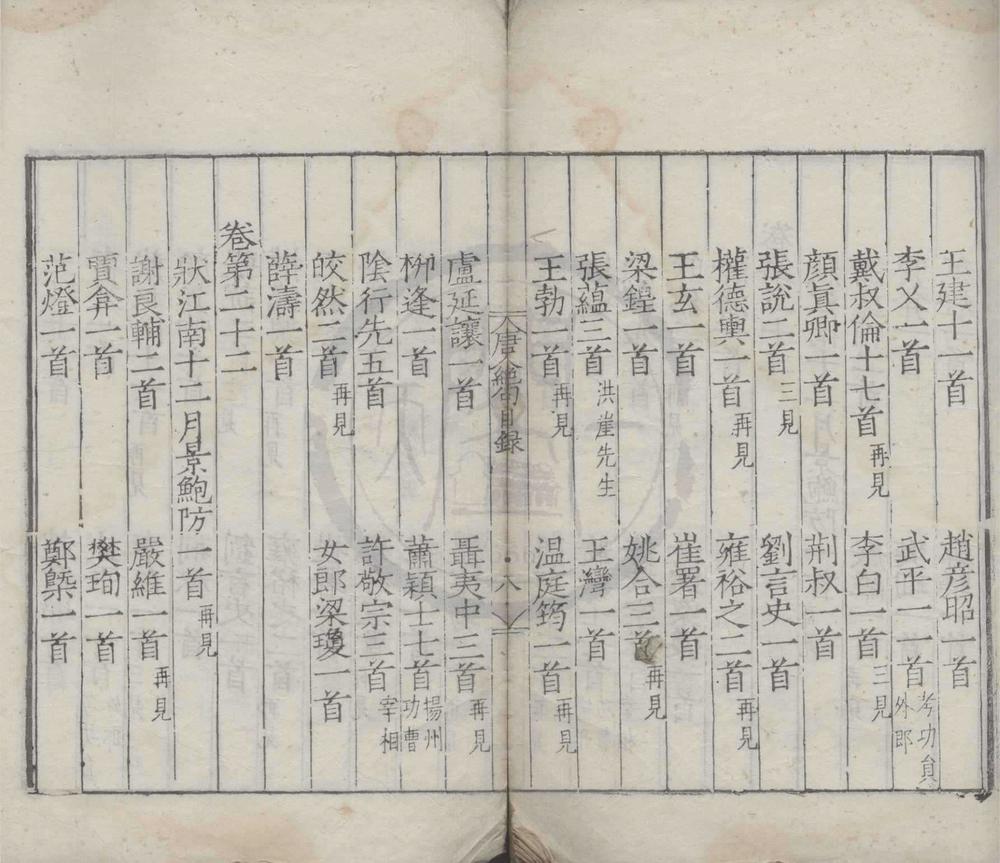 王建十一首 趙彦昭一首
李乂一首 武平一一首考功員外郎
戴叔倫十七首再見 李白一首三見
顔眞卿一首 荆叔一首
張說二首三見 劉言史一首
權德輿一首再見 雍裕之二首再見
王玄一首 崔署一首
梁鍠一首 姚合三首再見
張蘊三首洪崖先生 王灣一首
王勃一首再見 温庭筠一首再見
唐人絕句目録 八
盧延讓一首 聶夷中三首再見
栁逢一首 蕭穎士七首揚州功曹
陰行先五首 許敬宗三首宰相
皎然二首再見 女郎梁瓊一首
薛濤一首
卷第二十二
狀江南十二月景鮑防一首再見
謝良輔二首 嚴維一首再見
賈弇一首 樊珣一首
范燈一首 鄭槩一首